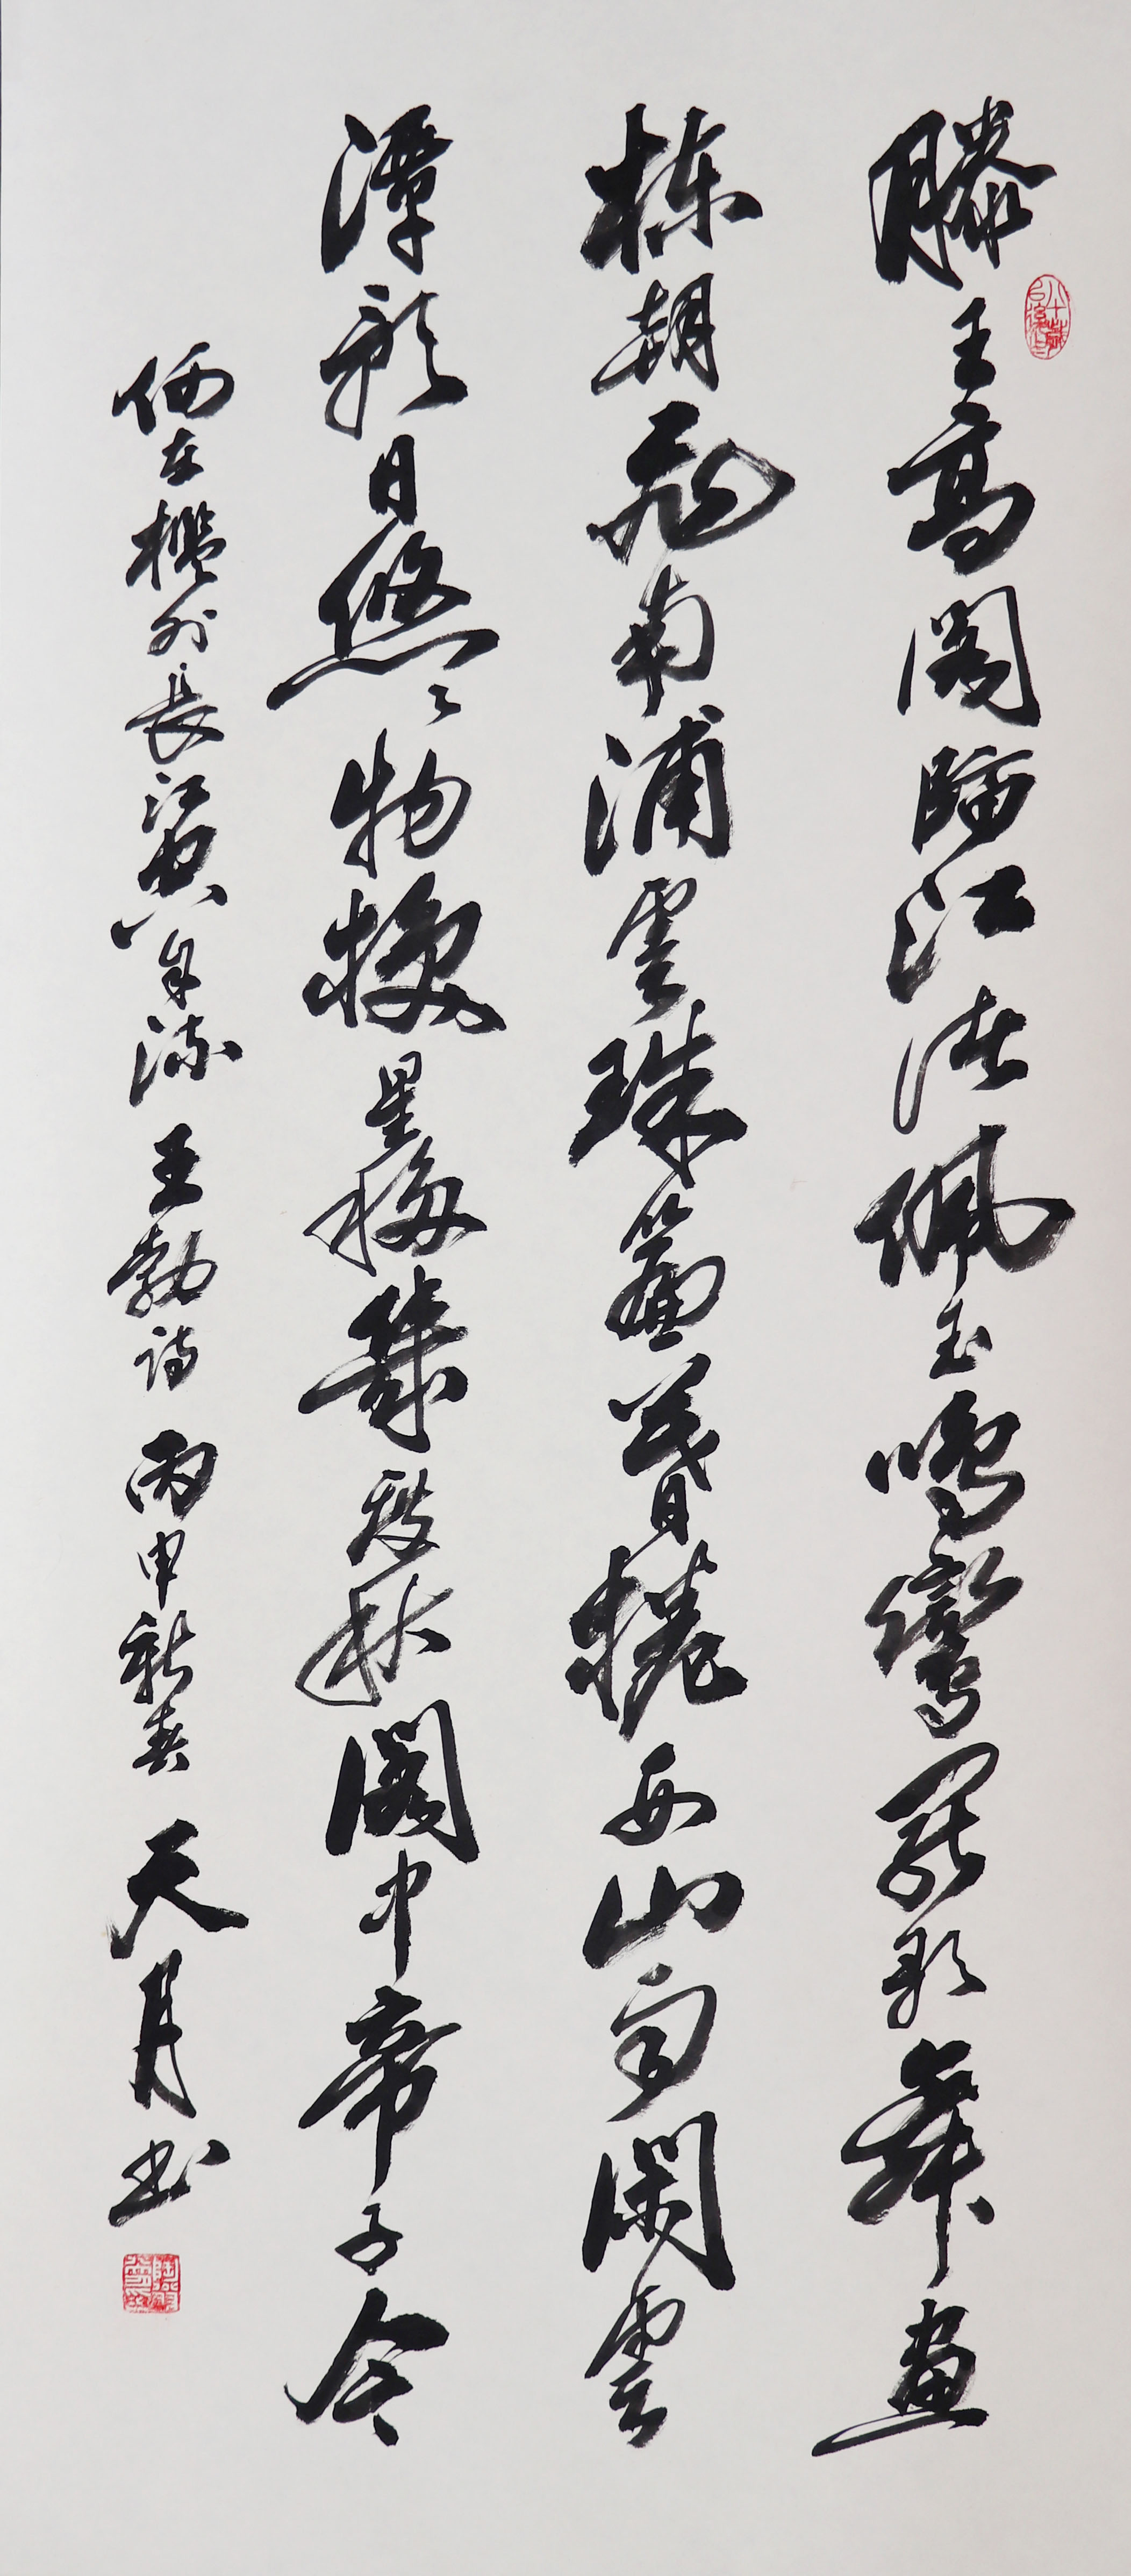 滕王高閣臨江渚佩玉鳴鸞罷歌舞畫
棟朝飛南浦雲珠簾暮捲西山雨閑雲
潭影日悠々物換星移幾度秋閣中帝子今
何在檻外長江空自流 王勃詩 丙申新春 天月书